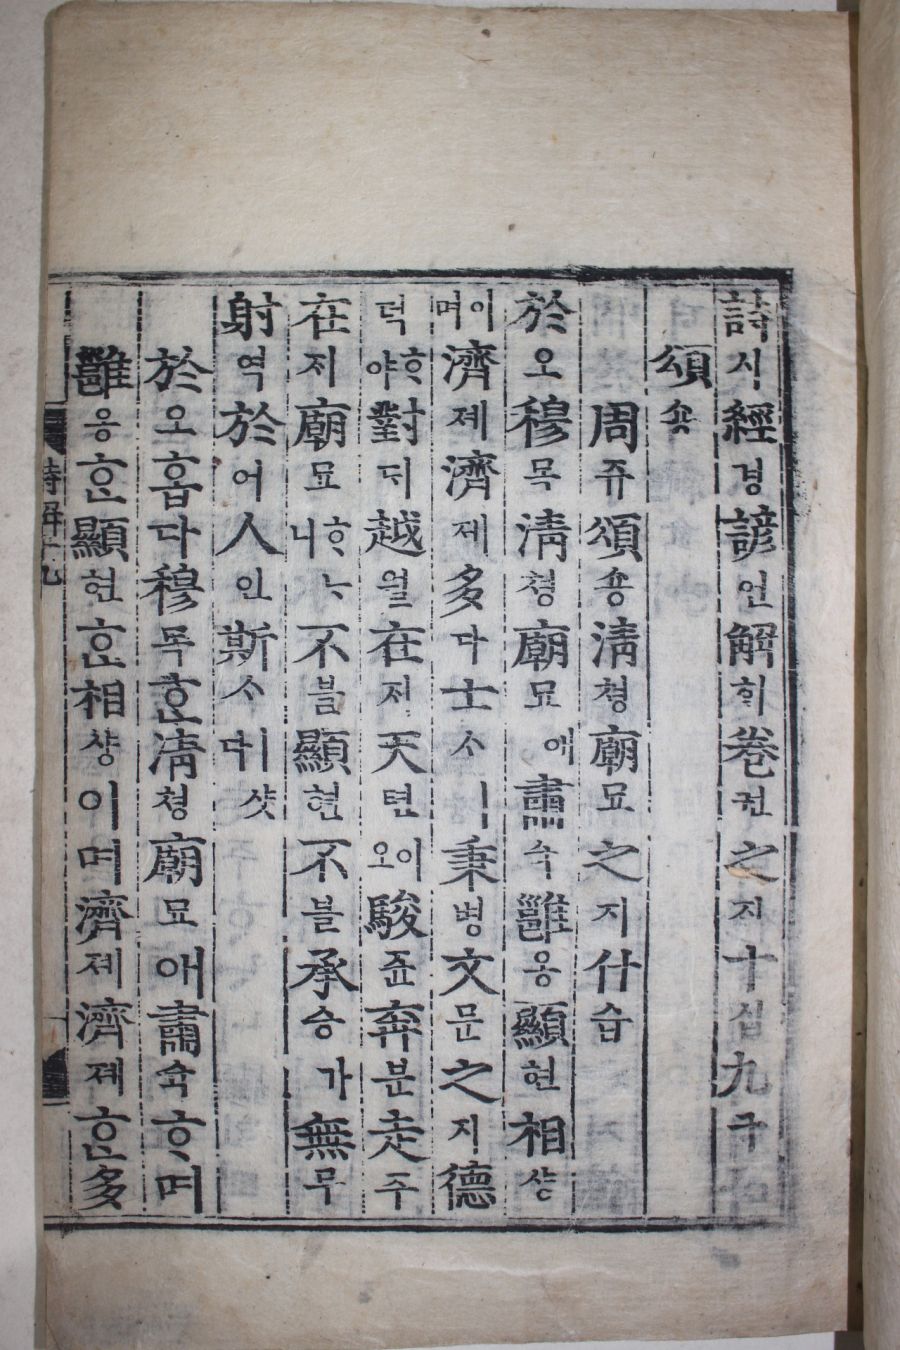 詩시經경諺언解ᄒᆡ卷권之지十십九구
頌숑
周쥬頌숑淸쳥廟묘之지什습
於오穆목淸쳥廟묘애肅슉雝옹顯현相샹
이며濟졔濟졔多다士ᄉᆞㅣ秉병文문之지德
덕ᄒᆞ야對ᄃᆡ越월在ᄌᆡ天텬이오駿쥰奔분走주
在ᄌᆡ廟묘ᄒᆞᄂᆞ니不블顯현不블承승가無무
射역於어人인斯ᄉᆞㅣ샷다
於오홉다穆목ᄒᆞᆫ淸쳥廟묘애肅슉ᄒᆞ며
雝옹ᄒᆞᆫ顯현ᄒᆞᆫ相샹이며濟졔濟졔ᄒᆞᆫ多
詩解十九